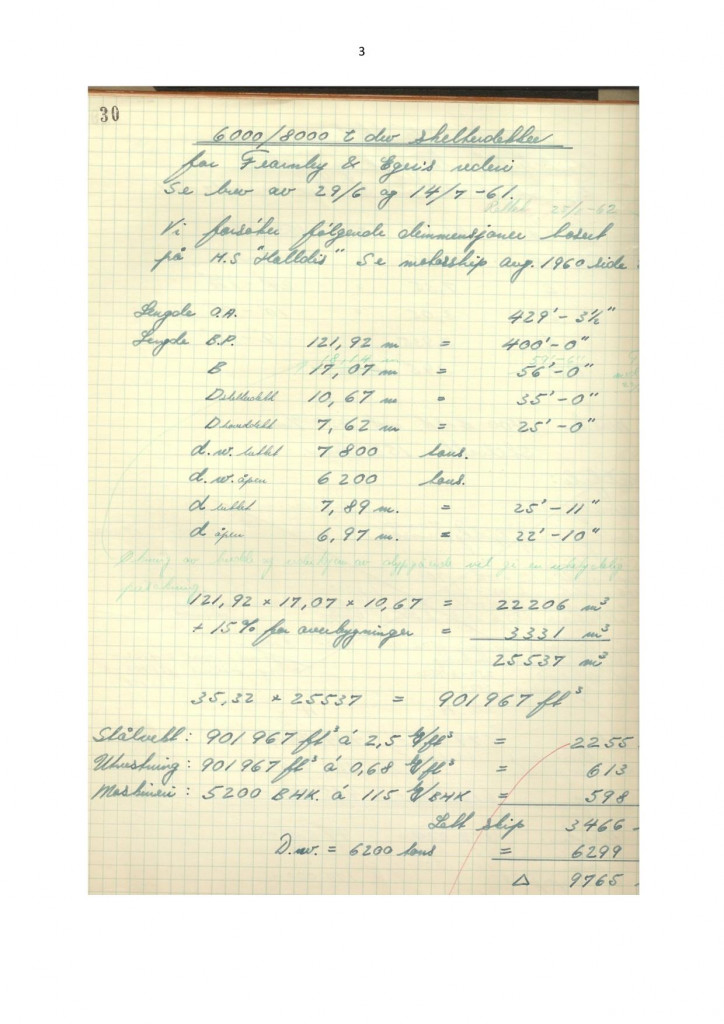 3
30
6000/8000 t dw shelterdekker
for Fearnley & Egers rederi
Se brev av 29/6 og 14/7-61.
Rettet 25/1-62
Vi forsøker følgende dimmensjoner basert
på M.S "Halldis" Se motorship aug. 1960 side
Lengde O.A. 429'-3½"
Lengde B.P. 121,92 m = 400'-0"
B 17,07 m = 56'-0"
D shelterdekk 10,67 m = 35'-0"
D hoveddekk 7,62 m = 25'-0"
d.w. lukket 7800 tons.
d.w. åpen 6200 tons.
d lukket 7,89 m. = 25'-11"
d åpen 6,97 m. = 22'-10"
av og av dypgående vil gi en
121,92 × 17,07 × 10,67 = 22206 m³
+ 15% for overbygninger = 3331 m³
25537 m³
35,32 × 25537 = 901967 ft³
Stålvekt: 901967 ft³ á 2,5 kg/ft³ = 2255
Utrustning: 901967 ft³ á 0,68 kg/ft³ = 613
Maskineri: 5200 BHK. á 115 kg/BHK = 598
Lett skip 3466 -
D.w. = 6200 tons = 6299
△ 9765